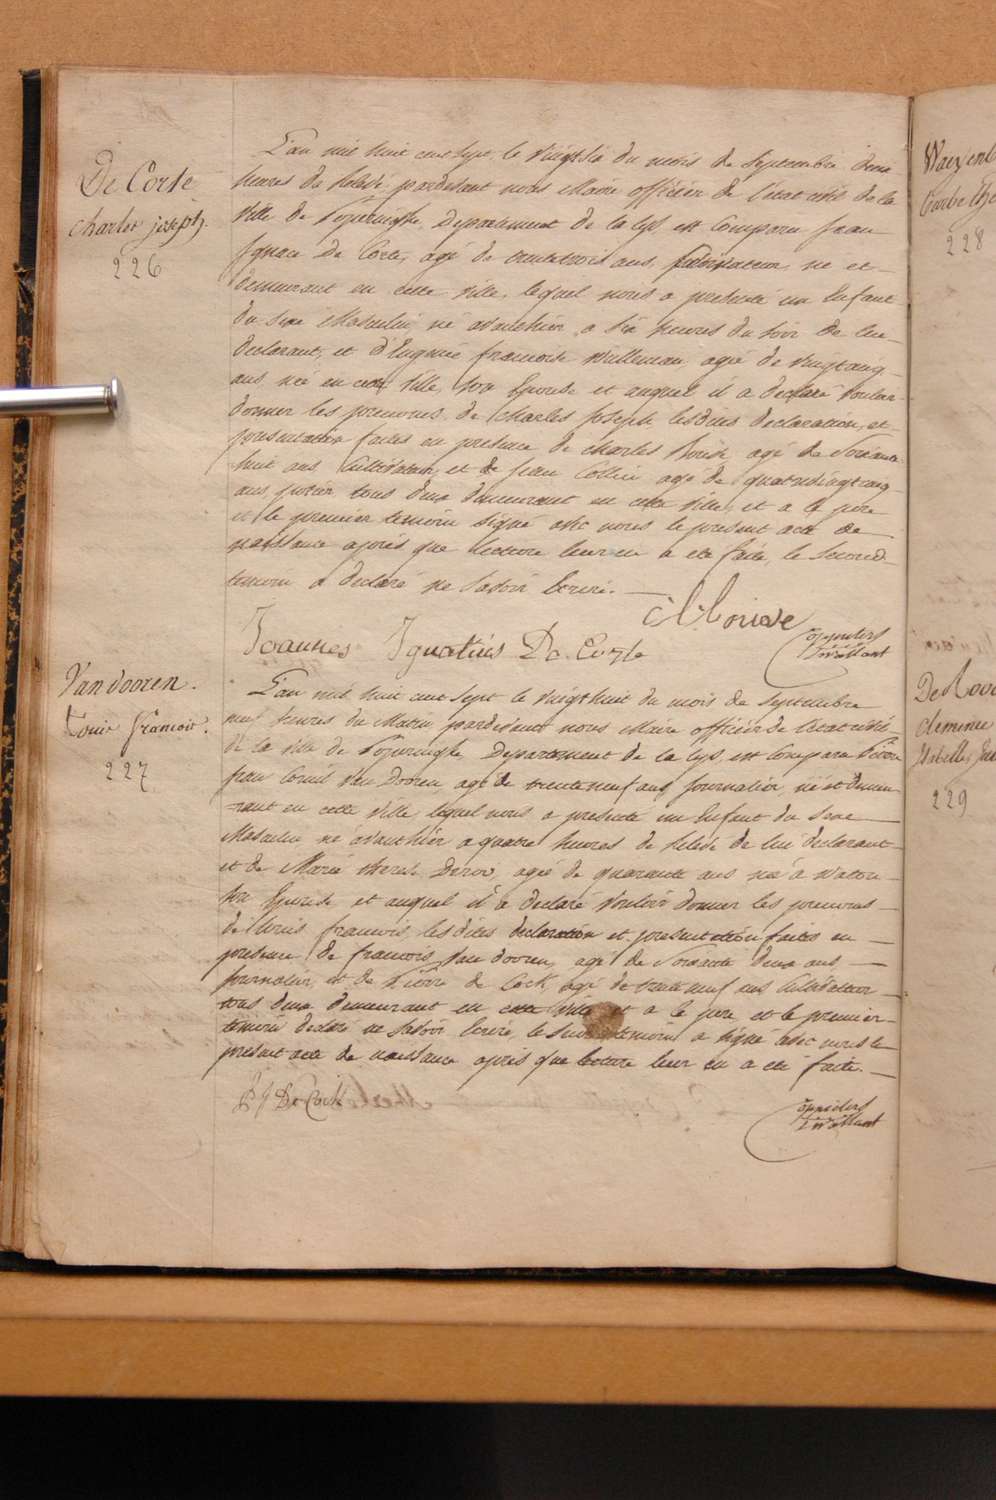 De Corte
charles joseph.
226
L'an mil huit cent sept, le vingt six du mois de Septembre deux
heures de Relevé pardevant nous Maire officier de l'état civil de la
ville de Poperinghe, Departement de la Lys, est comparu Jean
Ignace De Corte, agé de trente trois ans, Cultivateur, né et
demeurant en cette ville, lequel nous a presenté un Enfant
du sexe Masculin, né avanthier a six heures du soir de lui
declarant, et d'Eugenie francoise Willeman agée de vingt cinq
ans, née en cette ville, son Epouse et auquel il a declaré vouloir
donner les prenoms de Charles Joseph lesdites declaration, et
presentation faites en presence de charles agé de soixante
huit ans Cultivateur, et de Jean Collin agé de quatrevingt cinq
ans, tous deux demeurant en cette ville, et a le pere
et le premier temoin signé avec nous le present acte de
naissance après que lecture leur en a eté faite, le second
temoin a declaré ne savoir Ecrire.
Joannes Ignatius De Corte
Van dooren.
Louis francois.
227
L'an mil huit cent sept le vingt huit du mois de Septembre
neuf heures du Matin pardevant nous Maire officier de l'etat civil
de la ville de Poperinghe Departement de la Lys, est Comparu Pierre
Jean Corneil Van Dooren agé de trente neuf ans Journalier, né et demeu-
rant en cette ville, lequel nous a presenté un Enfant du Sexe
Masculin né avanthier a quatre heures de Relevé de lui declarant
et de Marie therese Deroo, agée de quarante ans née à Watou
son Epouse et auquel il a declaré vouloir donner les prenoms
de Louis francois, les dites declaration et presentation faites en
presence de francois Van dooren, agé de soixante deux ans
Journalier, et de Pierre de Cock, agé de trente neuf ans Cultivateur
tous deux demeurant en cette ville et a le pere et le premier
temoin declaré ne savoir Ecrire, le second temoin a signé avec nous le
present acte de naissance après que lecture leur en a eté faite.
P J De Cock
228
De Roo
229